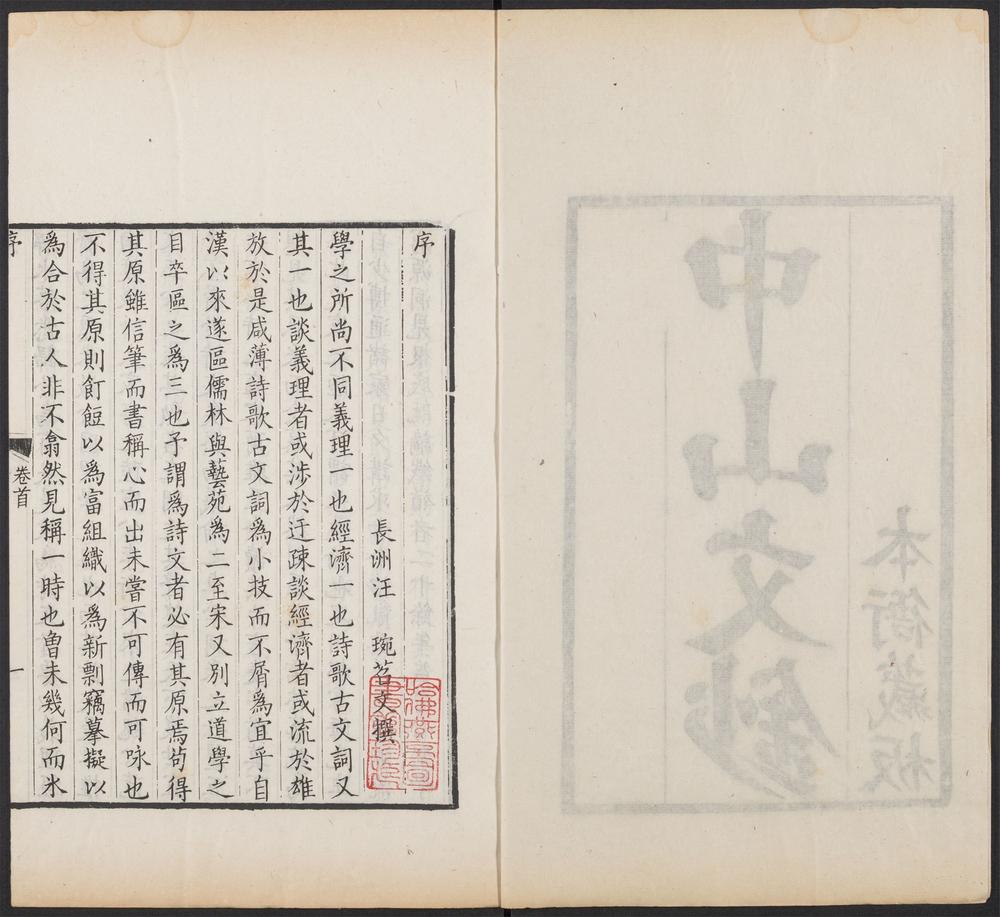 中山文鈔
本衙藏板
序
長洲汪琬苕文撰
學之所尚不同義理一也經濟一也詩歌古文詞又
其一也談義理者或涉於迂疎談經濟者或流於雄
放於是咸薄詩歌古文詞為小技而不屑為宜乎自
漢以來遂區儒林與藝苑為二至宋又別立道學之
目卒區之為三也予謂為詩文者必有其原焉茍得
其原雖信筆而書稱心而出未嘗不可傳而可咏也
不得其原則飣餖以為富組織以為新剽竊摹擬以
為合於古人非不翕然見稱一時也曾未幾何而氷
序
卷首
一